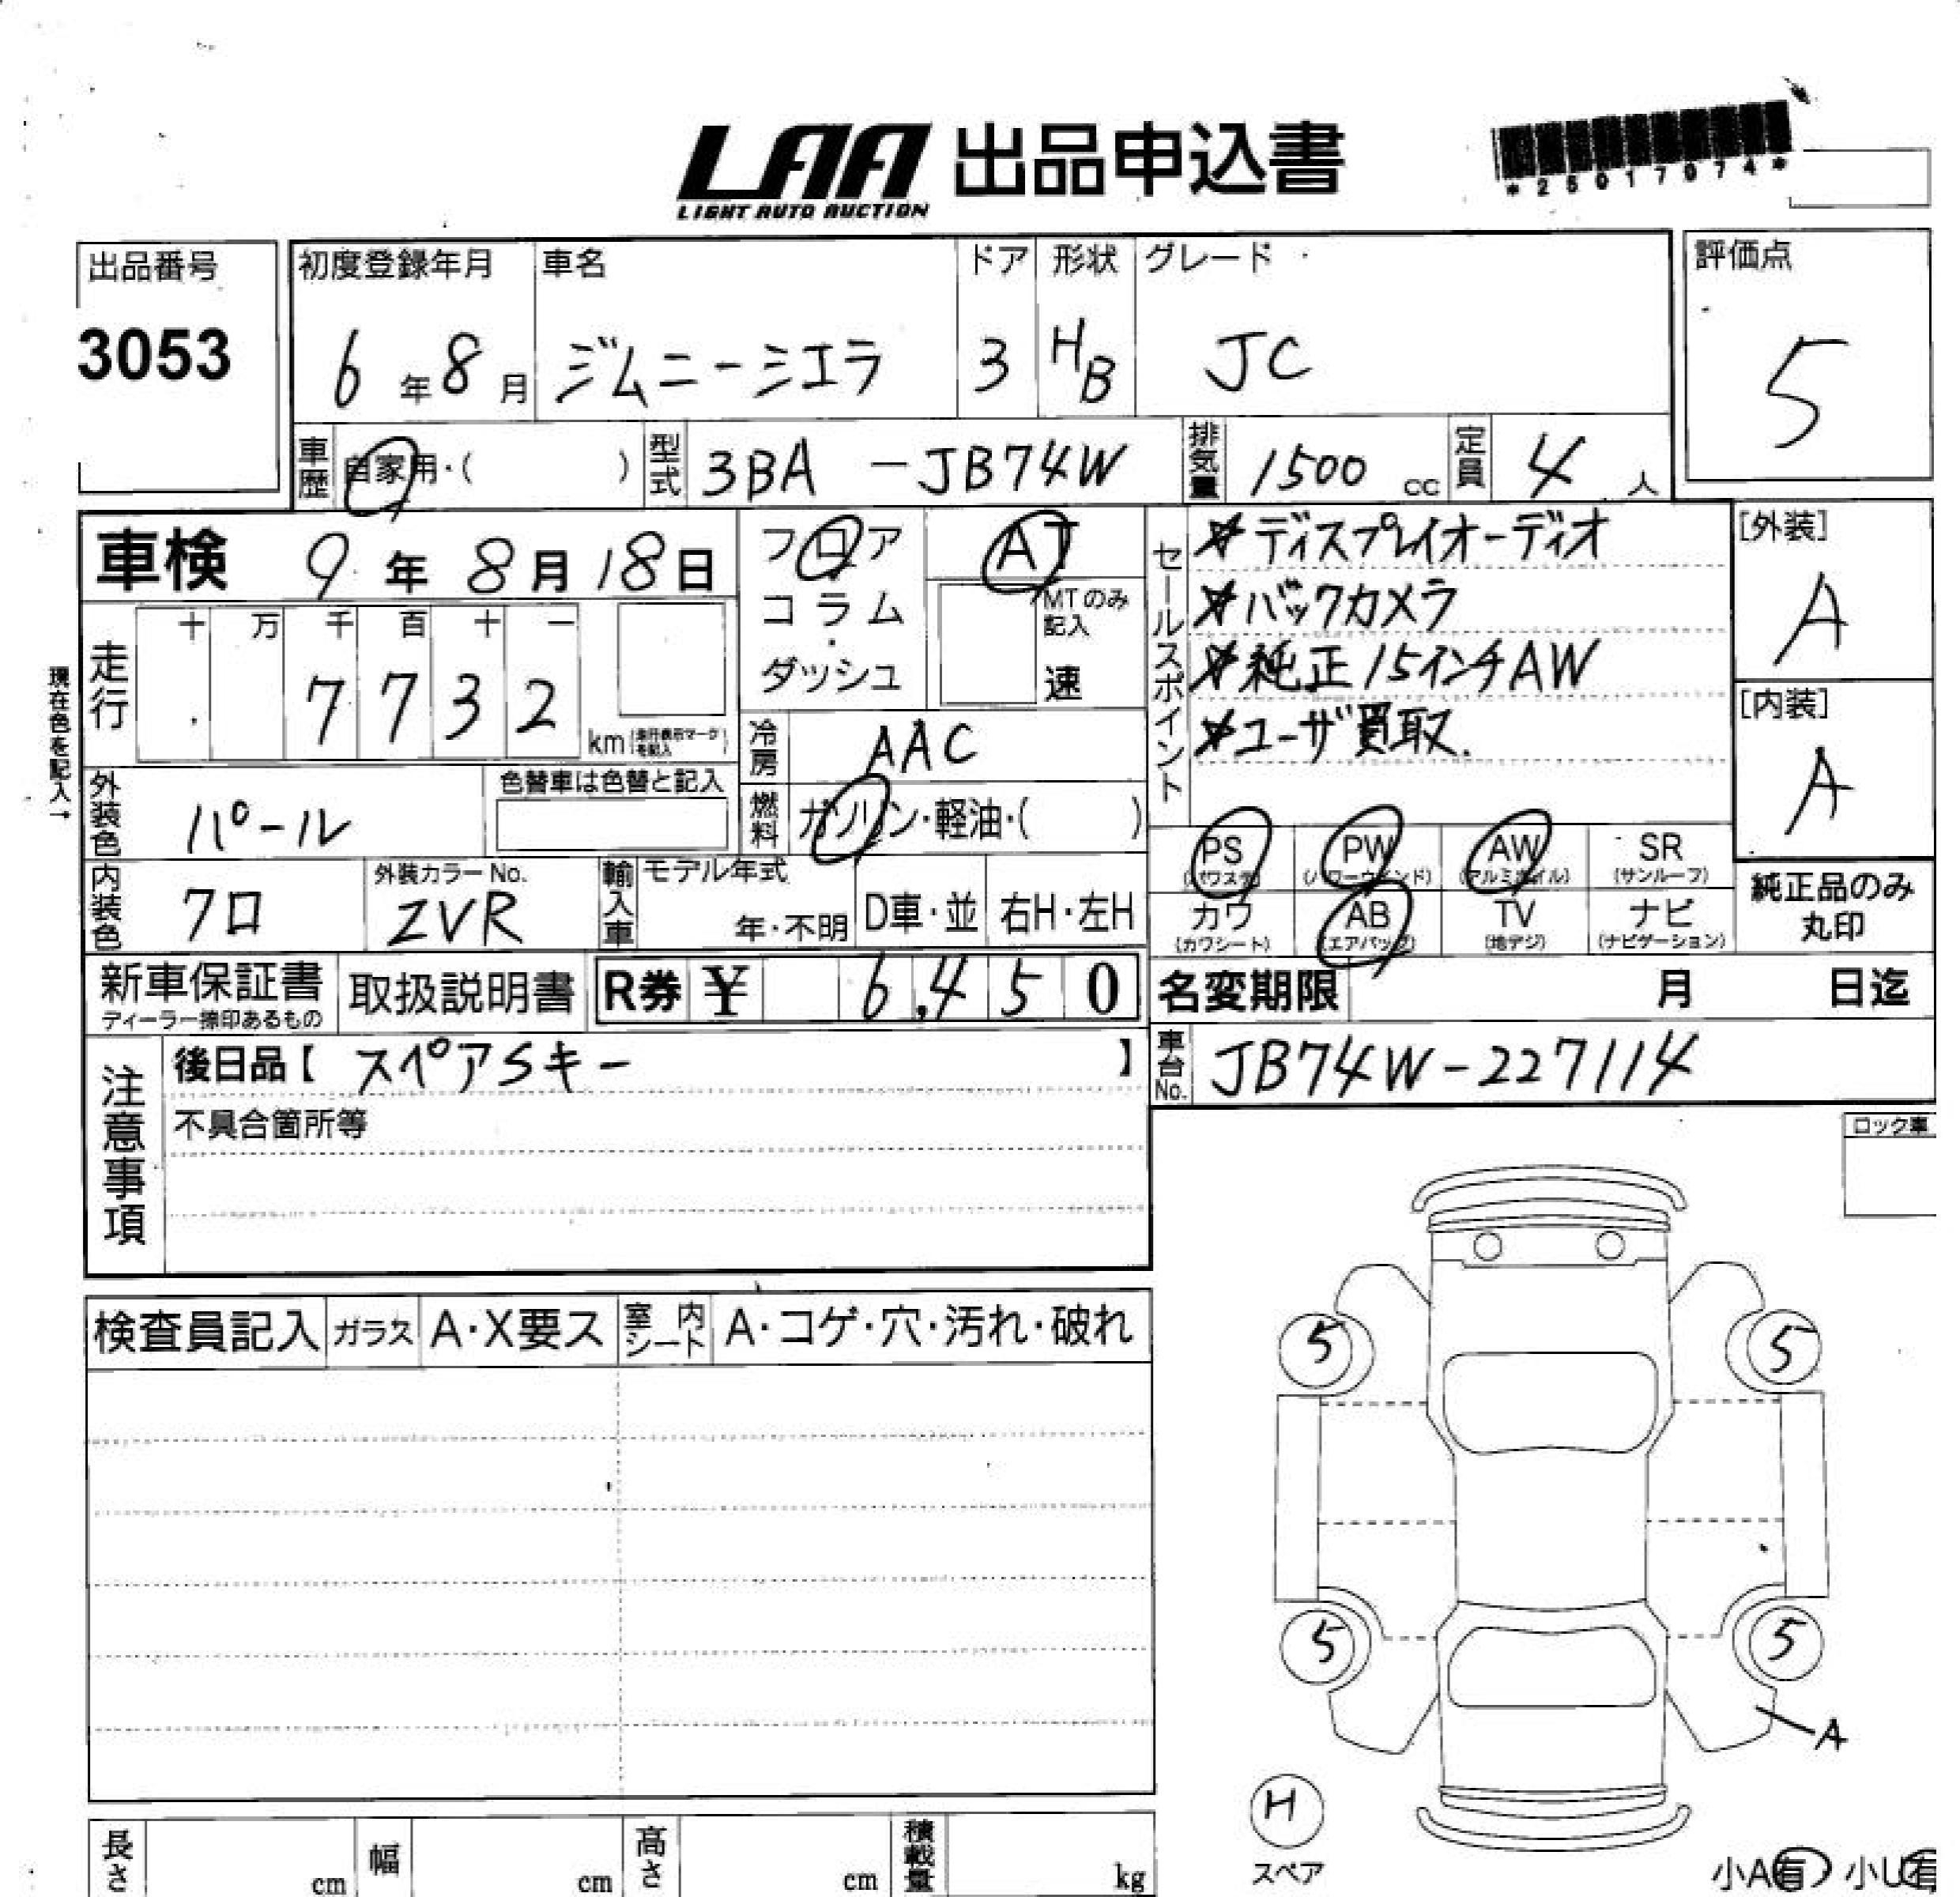 LAA 出品申込書
LIGHT AUTO AUCTION
*25017074*
出品番号
3053
初度登録年月 車名 ドア 形状 グレード 評価点
6年8月 ジムニーシエラ 3 HB JC 5
車歴 自家用・( ) 型式 3BA-JB74W 排気量 1500cc 定員 4人
車検 9年8月18日
フロア AT
コラム・ダッシュ
MTのみ記入 速
セールスポイント
☆ディスプレイオーディオ
☆バックカメラ
☆純正15インチAW
☆ユーザ買取.
[外装]
A
[内装]
A
現在色を記入→
走行 十 万 千 百 十 一
7732 km(走行表示マークを記入)
冷房 AAC
外装色 パール 色替車は色替と記入
燃料 ガソリン・軽油・( )
PS (パワステ) PW (パワーウインド) AW (アルミホイル) SR (サンルーフ)
カワ (カワシート) AB (エアバック) TV (地デジ) ナビ (ナビゲーション)
純正品のみ丸印
内装色 クロ 外装カラーNo. ZVR
輸入車 モデル年式 年・不明 D車・並 右H・左H
新車保証書 取扱説明書 R券 ¥ 6,450
ディーラー捺印あるもの
名変期限 月 日迄
車台No. JB74W-227114
注意事項
後日品【 スペアSキー 】
不具合箇所等
ロック車
検査員記入 ガラス A・X要ス 室内シート A・コゲ・穴・汚れ・破れ
5 5
5 5
A
H
スペア
小A有 小U有
長さ cm 幅 cm 高さ cm 積載量 kg